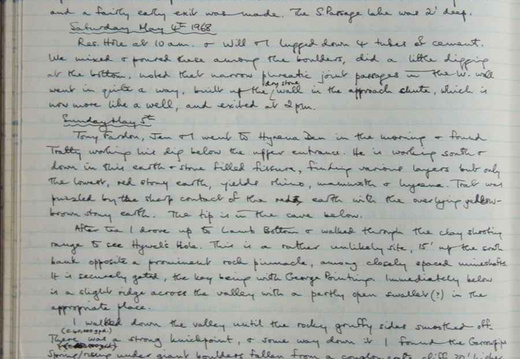 and a fairly early exit was made. The S. Passage lake was 2' deep.
Saturday May 4th 1968
Res. Hole at 10 am. & Will & I lugged down 4 tubes of cement.
We mixed & poured these among the boulders, did a little digging
at the bottom, noted that narrow phreatic joint passages in the W. wall
went in quite a way, built up the dry stone wall in the approach chute, which is
now more like a well, and exited at 2 pm.
Sunday May 5th
Tony Fardon, Jen & I went to Hyaena Den in the morning & found
Tratty working his dig below the upper entrance. He is working south &
down in this earth & stone filled fissure, finding various layers but only
the lowest, red stony earth, yields rhino, mammoth & hyaena. Trat was
puzzled by the sharp contact of the red earth with the overlying yellow-
brown stony earth. The tip is in the cave below.
After tea I drove up to Lamb Bottom & walked through the clay shooting
range to see Hole. This is a rather unlikely site, 15' up the south
bank opposite a prominent rock pinnacle, among closely spaced mineshafts.
It is securely gated, the key being with George Pointing. Immediately below
is a slight ridge across the valley with a partly open swallet (?) in the
appropriate place.
I walked down the valley until the rocky gruffy sides smoothed off.
There was a strong knickpoint, & some way down it I found the
under giant boulders fallen from a conglomerate cliff 20' high